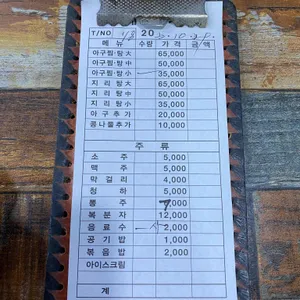 T/NO 1/3 20
메뉴 수량 가격 금액
아구찜·탕大 65,000
아구찜·탕中 50,000
아구찜·탕小 35,000
지리탕大 65,000
지리탕中 50,000
지리탕小 35,000
아구추가 20,000
콩나물추가 10,000
주류
소주 5,000
맥주 5,000
막걸리 4,000
청하 5,000
뽕주 7,000
복분자 12,000
음료수 2,000
공기밥 1,000
볶음밥 2,000
아이스크림
계